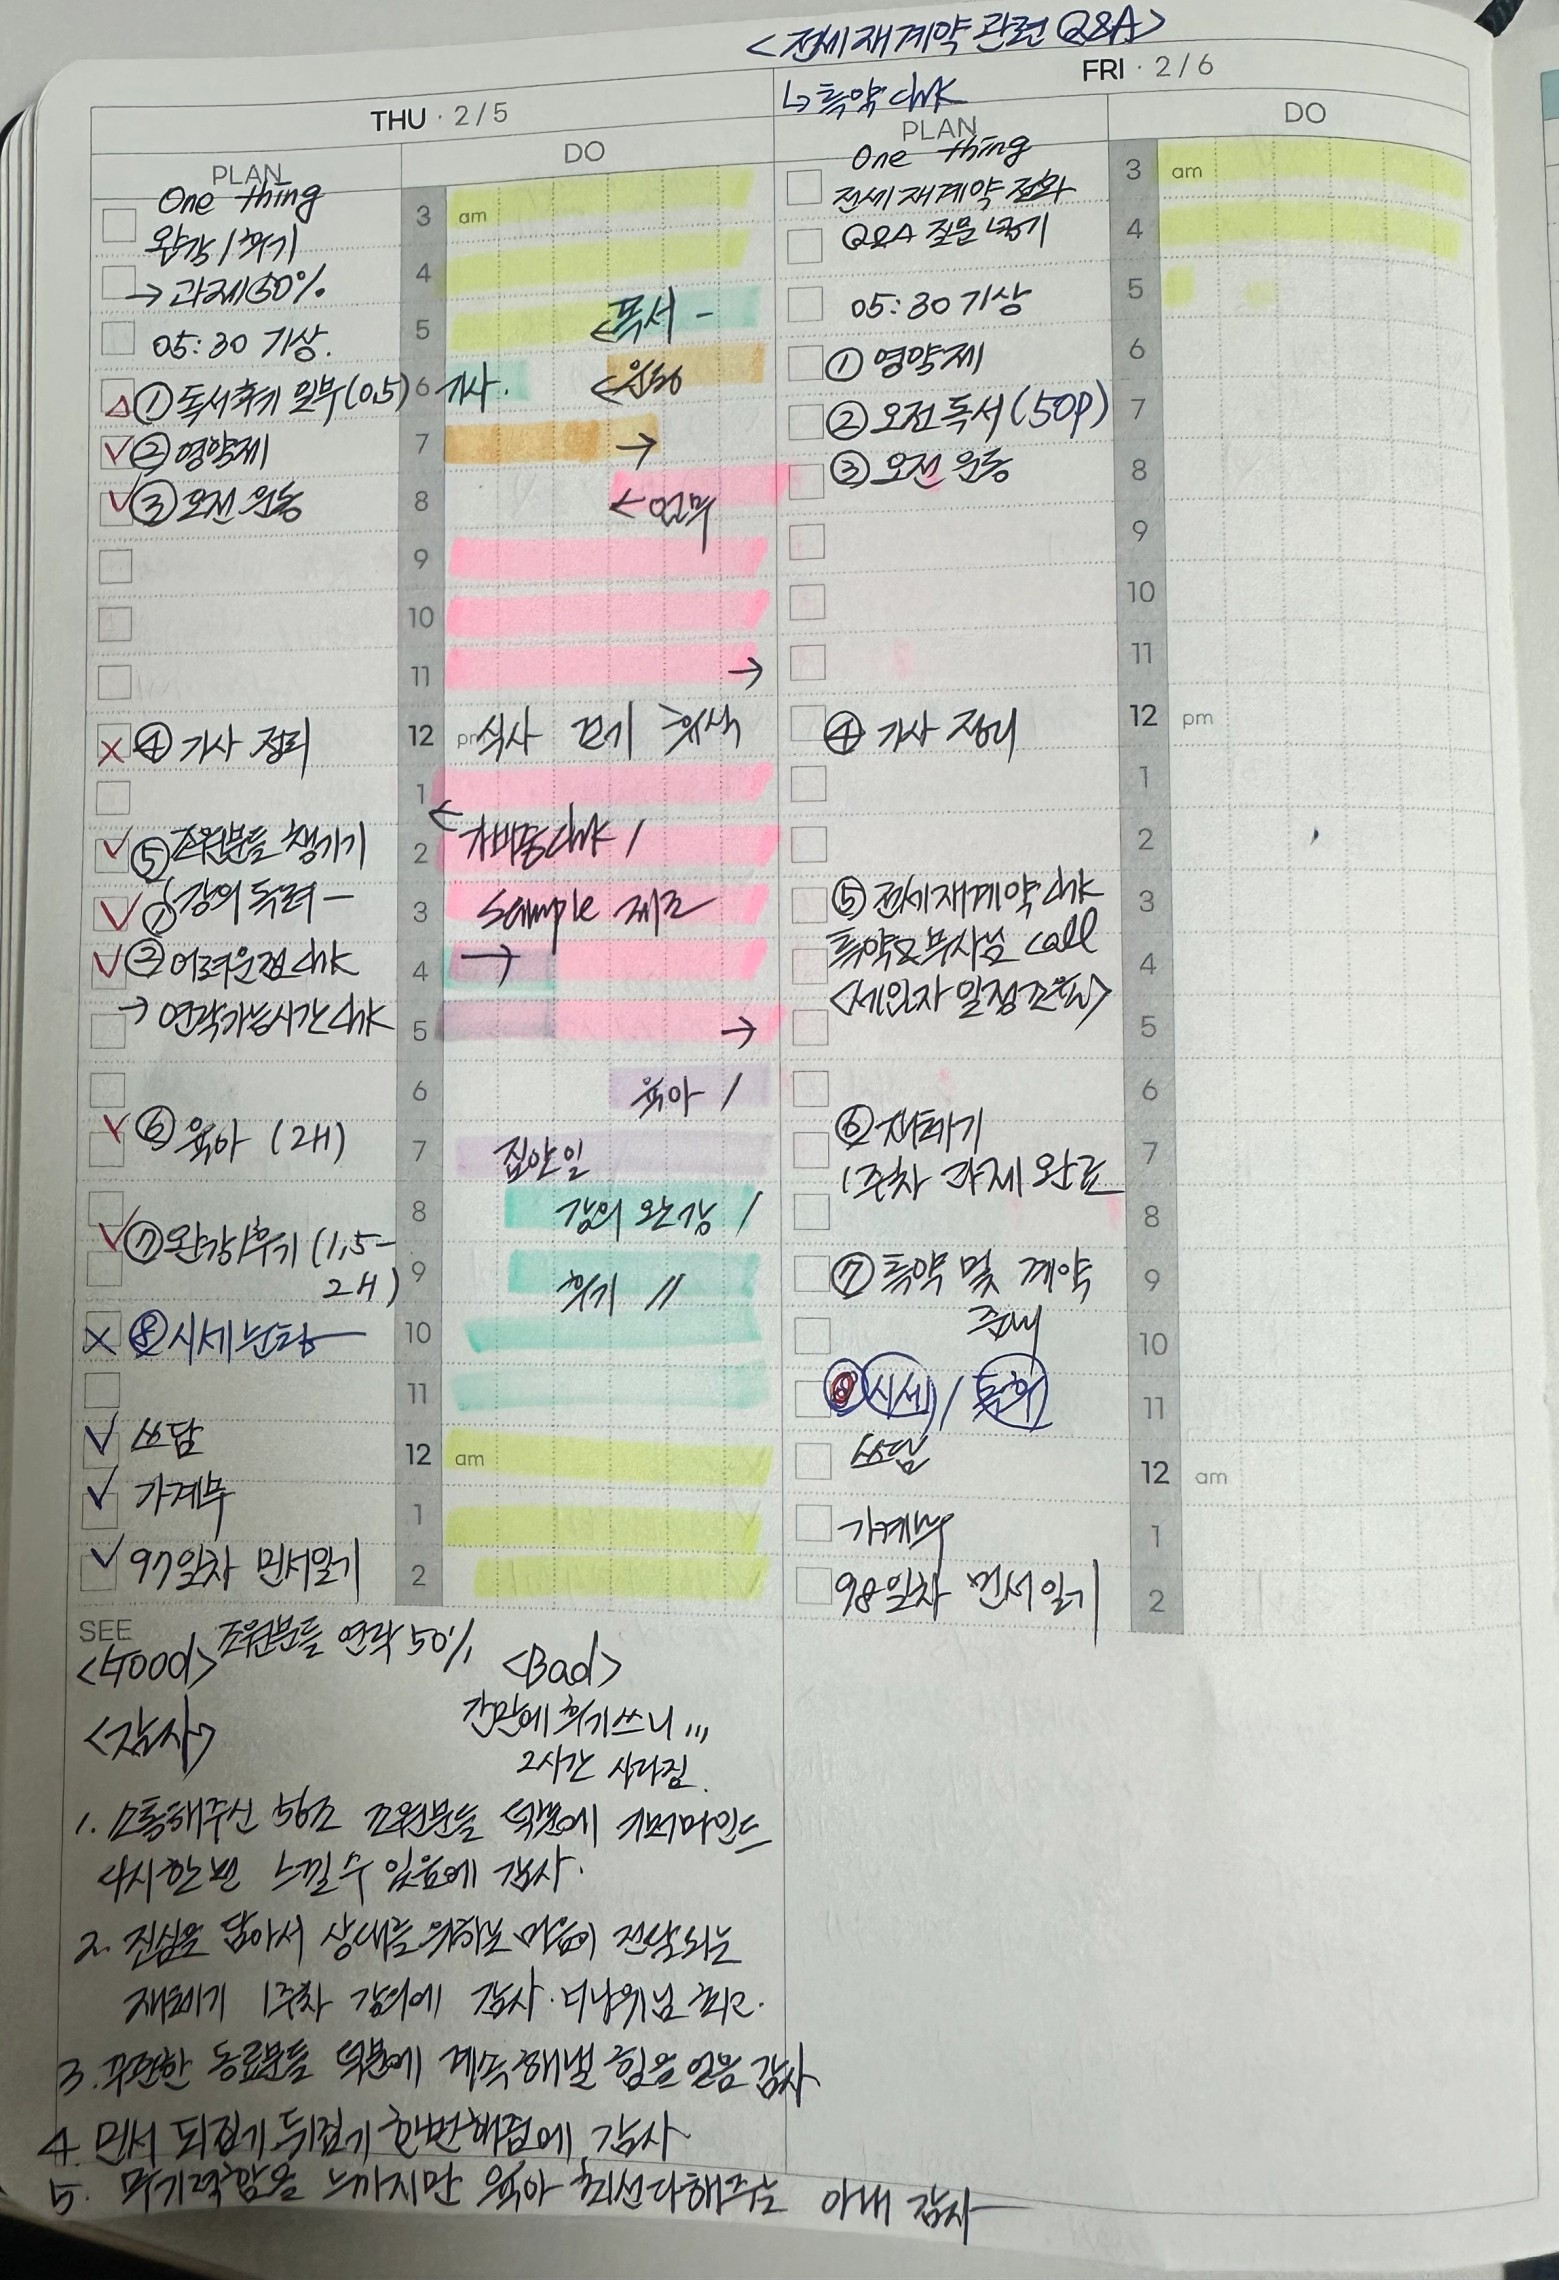 <전세재계약 관련 Q&A>
THU · 2/5
PLAN
DO
One thing
완강/후기
→ 과제 60%
05:30 기상.
① 독서후기 일부(0.5)
② 영양제
③ 오전 운동
④ 가사 정리
⑤ 조원분들 챙기기
① 강의 독려
② 어려운점 chk
→ 연락가능시간 chk
⑥ 육아 (2H)
⑦ 완강/후기 (1,5-
2H)
⑧ 시세
쓰담
가계부
97일차 민서일기
3 am
4
5 ←독서 -
6 기사. ←운동
7 →
8 ←업무
9
10
11 →
12 pm 식사 걷기 휴식
1
2 ← chk /
3 Sample 제조
4 →
5 →
6 육아 /
7 집안일
8 강의 완강 /
9 후기 //
10
11
12 am
1
2
SEE
<Good> 조원분들 연락 50%
<Bad>
간만에 후기쓰니 ,,,
2시간 사라짐.
<감사>
1. 소통해주신 56조 조원분들 덕분에 기버마인드
다시한번 느낄수 있음에 감사.
2. 진심을 담아서 상대를 위하는 마음이 전달되는
재테기 1주차 강의에 감사. 너나위님 최고.
3. 꾸준한 동료분들 덕분에 계속해낼 힘을 얻음 감사
4. 민서 되집기 뒤집기 한번해줌에 감사
5. 무기력함을 느끼지만 육아 최선다해주는 아내 감사
FRI · 2/6
↳ 특약 chk
PLAN
DO
One thing
전세재계약 전화
Q&A 질문 넣기
05:30 기상
① 영양제
② 오전 독서 (50P)
③ 오전 운동
④ 가사 정리
⑤ 전세재계약 chk
특약 & 부사님 call
<세입자 일정조율>
⑥ 재테기
1주차 과제 완료
⑦ 특약 및 계약
준비
⑧ 시세 / 통화
쓰담
가계부
98일차 민서일기
3 am
4
5
6
7
8
9
10
11
12 pm
1
2
3
4
5
6
7
8
9
10
11
12 am
1
2